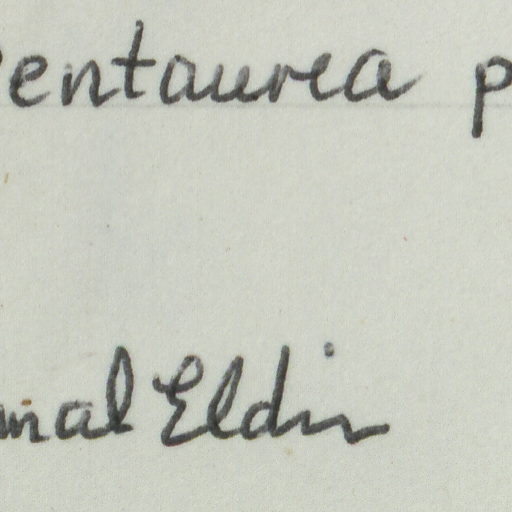 entaurea p
mal Eldin